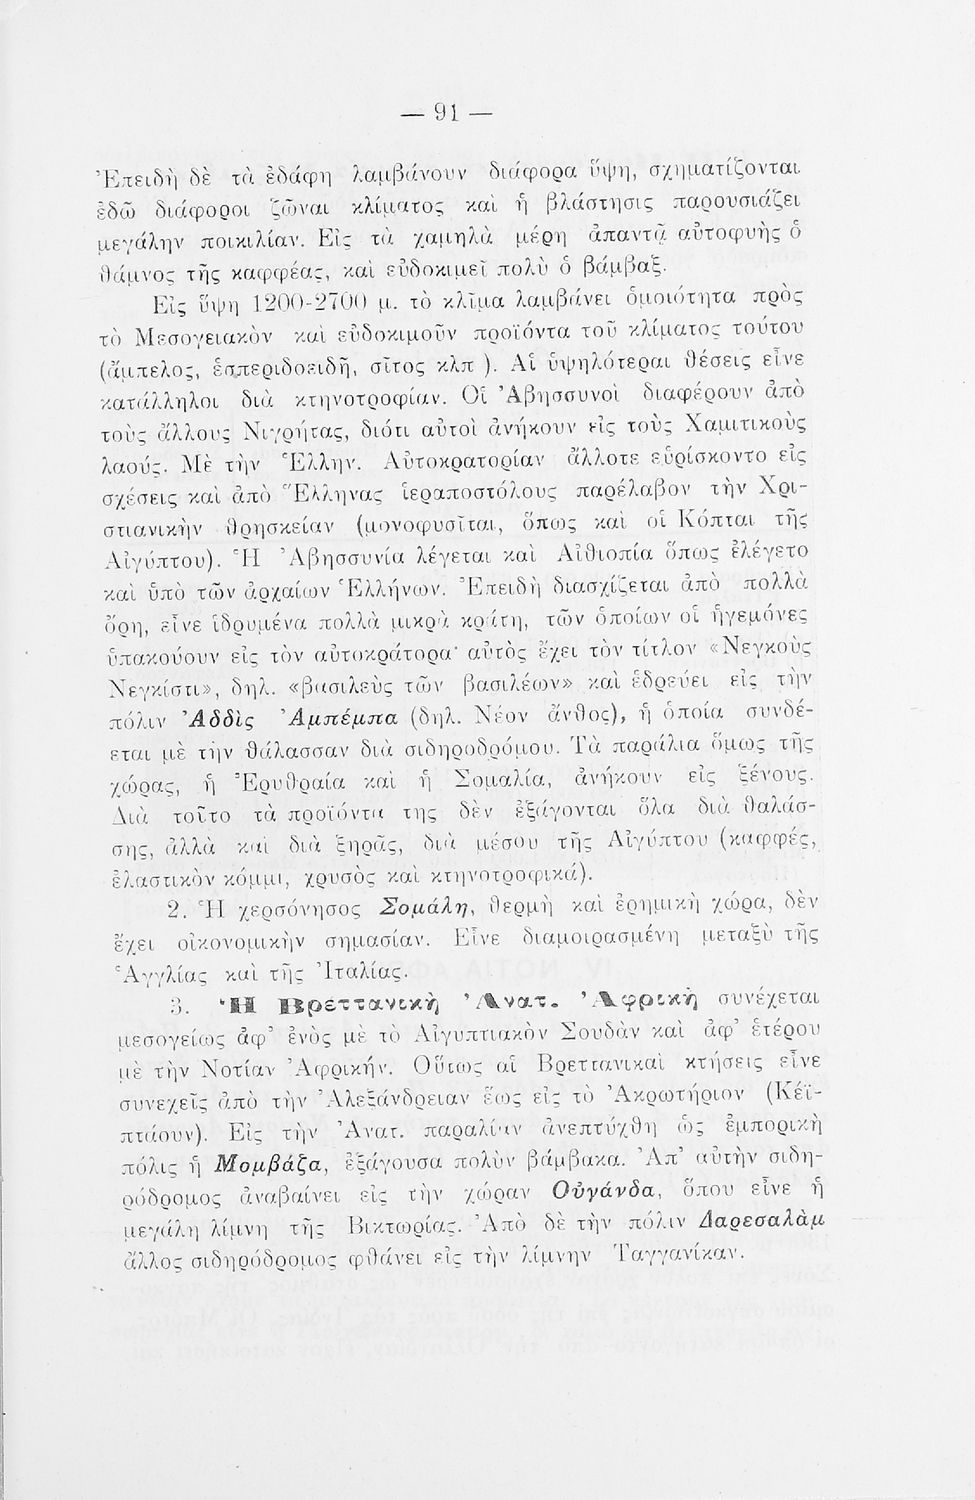 — 91 —
Ἐπειδὴ δὲ τὰ ἐδάφη λαμβάνουν διάφορα ὕψη, σχηματίζονται
ἐδῶ διάφοροι ζῶναι κλίματος καὶ ἡ βλάστησις παρουσιάζει
μεγάλην ποικιλίαν. Εἰς τὰ χαμηλὰ μέρη ἀπαντᾷ αὐτοφυὴς ὁ
θάμνος τῆς καφφέας, καὶ εὐδοκιμεῖ πολὺ ὁ βάμβαξ.
Εἰς ὕψη 1200-2700 μ. τὸ κλῖμα λαμβάνει ὁμοιότητα πρὸς
τὸ Μεσογειακὸν καὶ εὐδοκιμοῦν προϊόντα τοῦ κλίματος τούτου
(ἄμπελος, ἑσπεριδοειδῆ, σῖτος κλπ ). Αἱ ὑψηλότεραι θέσεις εἶνε
κατάλληλοι διὰ κτηνοτροφίαν. Οἱ Ἀβησσυνοὶ διαφέρουν ἀπὸ
τοὺς ἄλλους Νιγρήτας, διότι αὐτοὶ ἀνήκουν εἰς τοὺς Χαμιτικοὺς
λαούς. Μὲ τὴν Ἑλλην. Αὐτοκρατορίαν ἄλλοτε εὑρίσκοντο εἰς
σχέσεις καὶ ἀπὸ Ἕλληνας ἱεραποστόλους παρέλαβον τὴν Χρι-
στιανικὴν θρησκείαν (μονοφυσῖται, ὅπως καὶ οἱ Κόπται τῆς
Αἰγύπτου). Ἡ Ἀβησσυνία λέγεται καὶ Αἰθιοπία ὅπως ἐλέγετο
καὶ ὑπὸ τῶν ἀρχαίων Ἑλλήνων. Ἐπειδὴ διασχίζεται ἀπὸ πολλὰ
ὄρη, εἶνε ἱδρυμένα πολλὰ μικρὰ κράτη, τῶν ὁποίων οἱ ἡγεμόνες
ὑπακούουν εἰς τὸν αὐτοκράτορα· αὐτὸς ἔχει τὸν τίτλον «Νεγκοὺς
Νεγκίστι», δηλ. «βασιλεὺς τῶν βασιλέων» καὶ ἑδρεύει εἰς τὴν
πόλιν Ἀδδὶς Ἀμπέμπα (δηλ. Νέον ἄνθος), ἡ ὁποία συνδέ-
εται μὲ τὴν θάλασσαν διὰ σιδηροδρόμου. Τὰ παράλια ὅμως τῆς
χώρας, ἡ Ἐρυθραία καὶ ἡ Σομαλία, ἀνήκουν εἰς ξένους.
Διὰ τοῦτο τὰ προϊόντα της δὲν ἐξάγονται ὅλα διὰ θαλάσ-
σης, ἀλλὰ καὶ διὰ ξηρᾶς, διὰ μέσου τῆς Αἰγύπτου (καφφές,
ἐλαστικὸν κόμμι, χρυσὸς καὶ κτηνοτροφικά).
2. Ἡ χερσόνησος Σομάλη, θερμὴ καὶ ἐρημικὴ χώρα, δὲν
ἔχει οἰκονομικὴν σημασίαν. Εἶνε διαμοιρασμένη μεταξὺ τῆς
Ἀγγλίας καὶ τῆς Ἰταλίας.
3. Ἡ Βρεττανικὴ Ἀνατ. Ἀφρικὴ συνέχεται
μεσογείως ἀφ’ ἑνὸς μὲ τὸ Αἰγυπτιακὸν Σουδὰν καὶ ἀφ’ ἑτέρου
μὲ τὴν Νοτίαν Ἀφρικήν. Οὕτως αἱ Βρεττανικαὶ κτήσεις εἶνε
συνεχεῖς ἀπὸ τὴν Ἀλεξάνδρειαν ἕως εἰς τὸ Ἀκρωτήριον (Κέϊ-
πτάουν). Εἰς τὴν Ἀνατ. παραλίαν ἀνεπτύχθη ὡς ἐμπορικὴ
πόλις ἡ Μομβάζα, ἐξάγουσα πολὺν βάμβακα. Ἀπ’ αὐτὴν σιδη-
ρόδρομος ἀναβαίνει εἰς τὴν χώραν Οὐγάνδα, ὅπου εἶνε ἡ
μεγάλη λίμνη τῆς Βικτωρίας. Ἀπὸ δὲ τὴν πόλιν Δαρεσαλὰμ
ἄλλος σιδηρόδρομος φθάνει εἰς τὴν λίμνην Ταγγανίκαν.